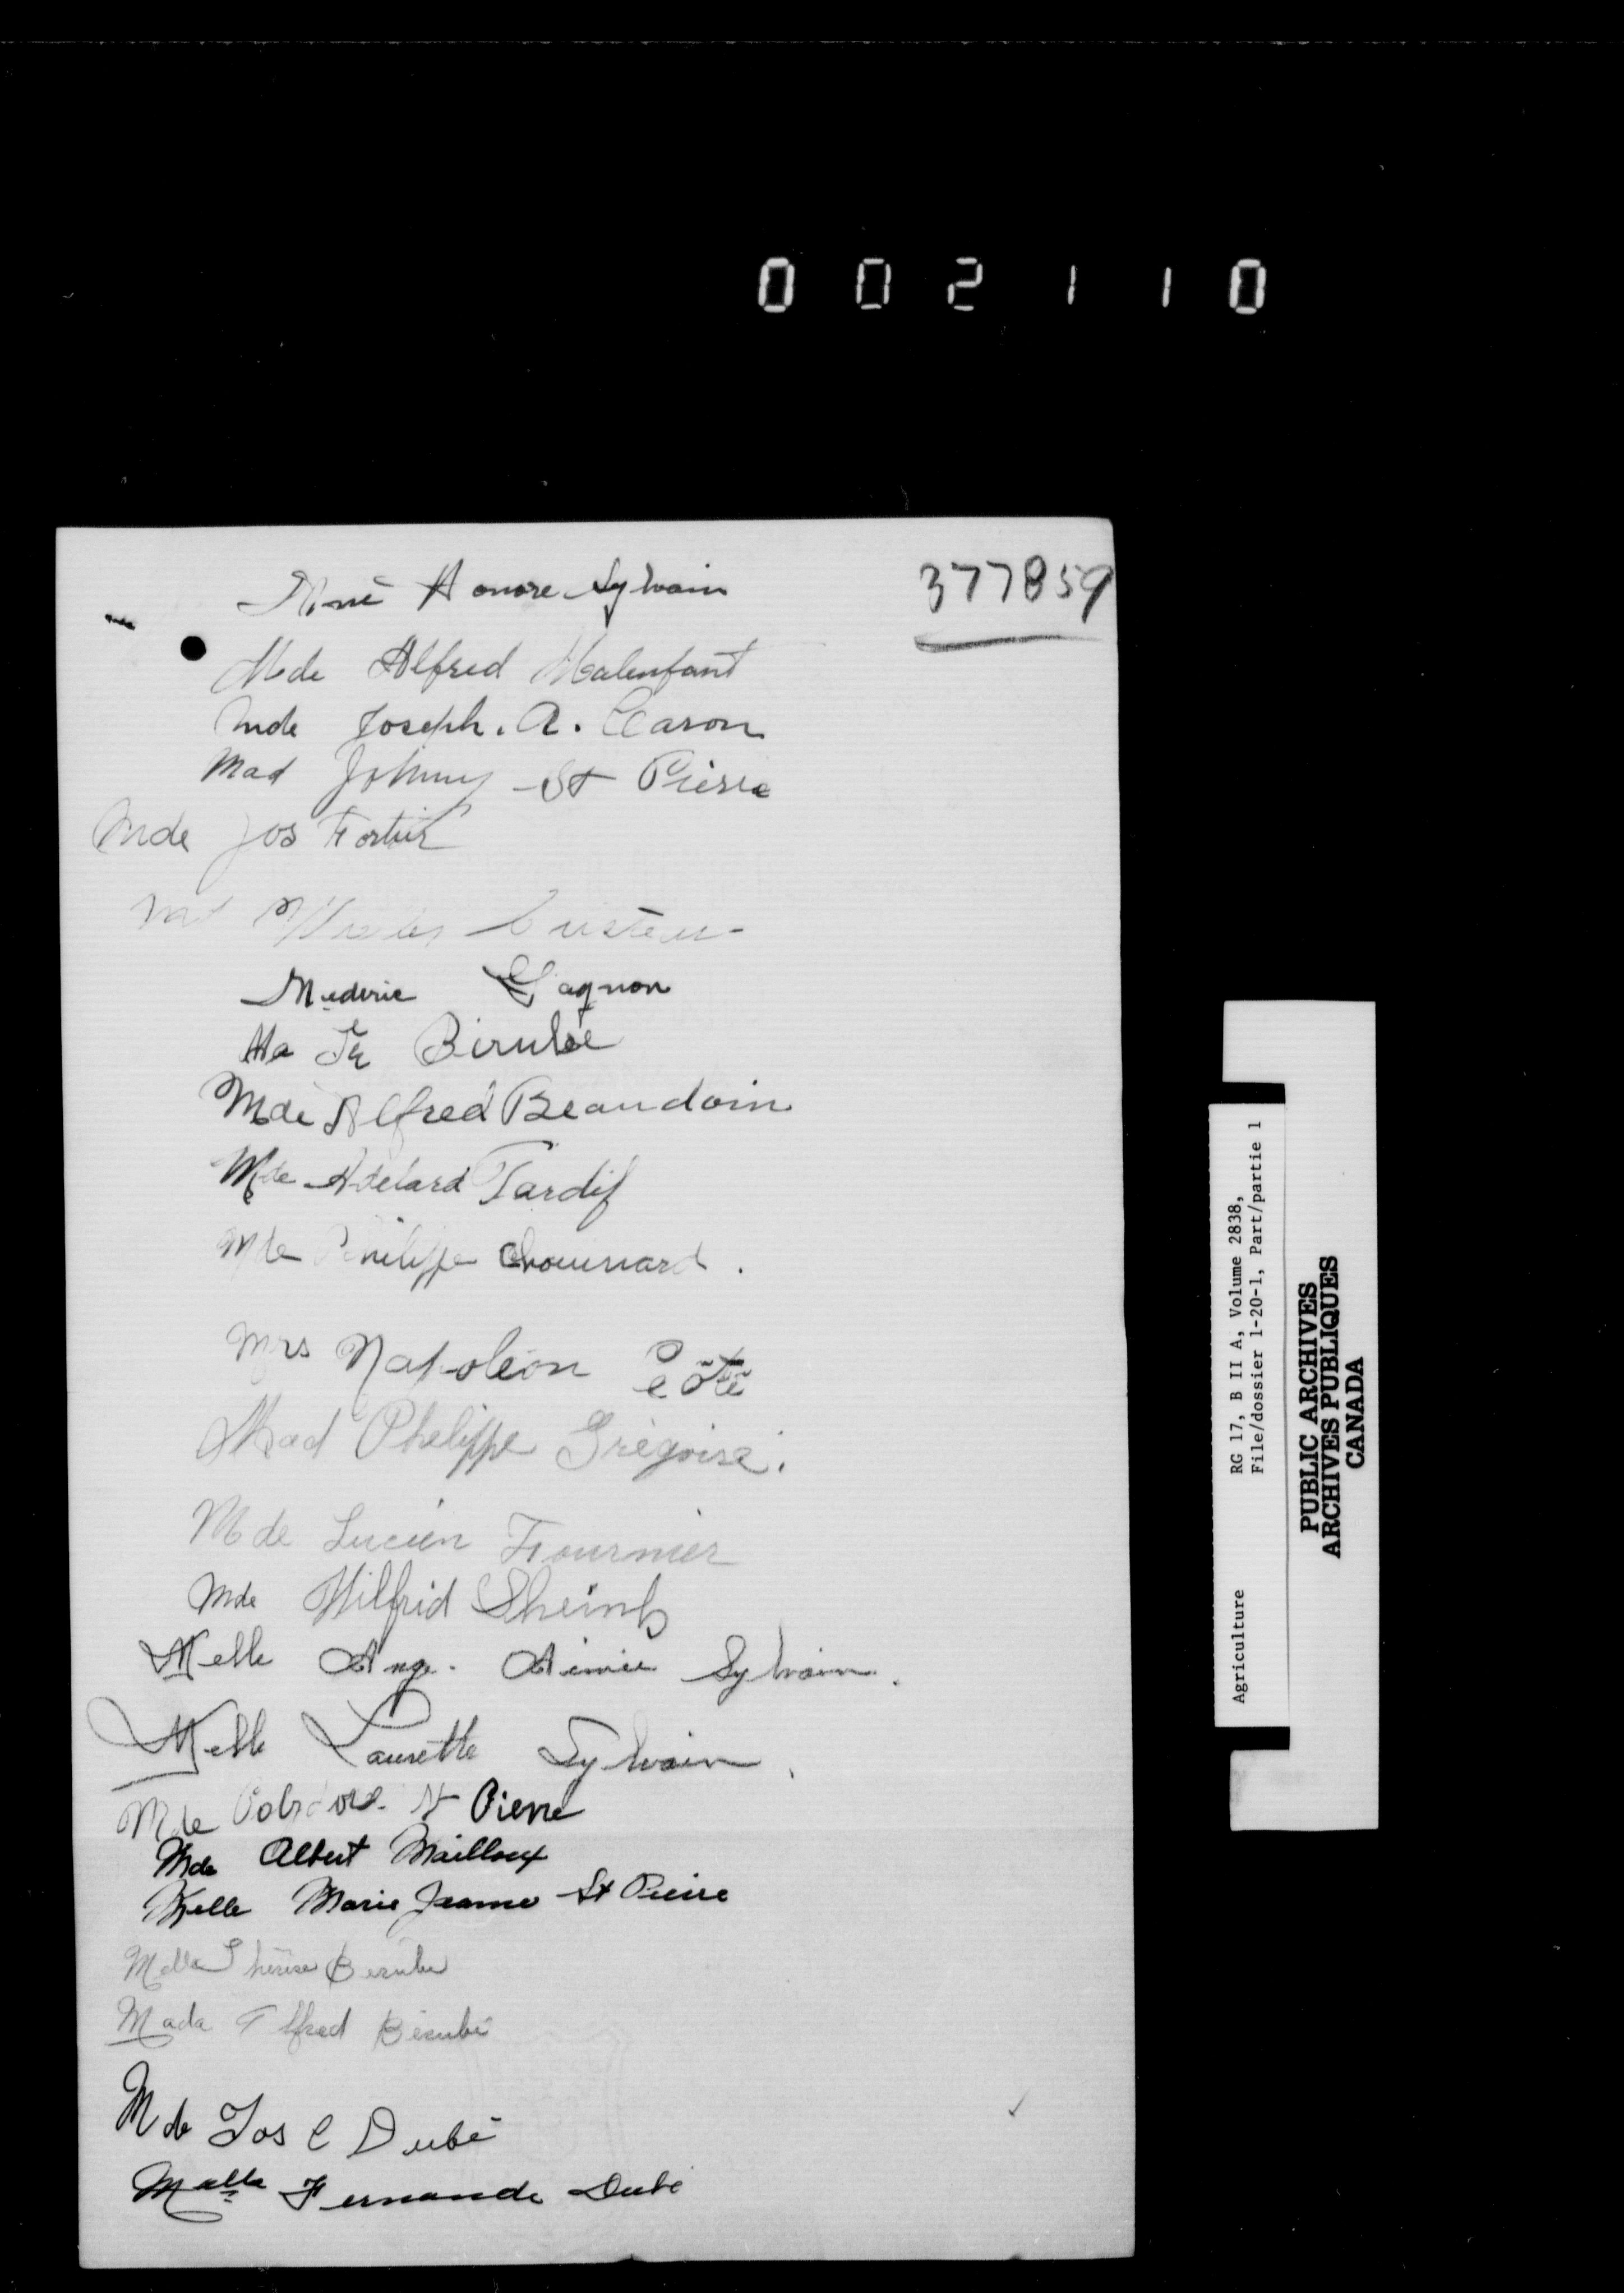 002110
377859
Mmé Honore Sylvain
Mde Alfred Malenfant
Mde Joseph. A. Caron
Mad Johnny St Pierre
Mde Jos Fortier
Mederic Gagnon
Berubé
Mde Alfred Beaudoin
Mde Adelard Tardif
Mde Philippe Chouinard.
Mrs Napoléon Côté
Mad Philippe Grégoire.
Mde Lucien Fournier
Mde Wilfrid
Melle Ange. Aimée Sylvain.
Melle Laurette Sylvain.
Mde St Pierre
Mde Albert Mailloux
Melle Marie Jeanne St Pierre
Melle Thérèse Berube
Mada Alfred Bérubé
Mde Jos C Dubé
Melle Fernande Dubé
Agriculture RG 17, B II A, Volume 2838,
File/dossier 1-20-1, Part/partie 1
PUBLIC ARCHIVES
ARCHIVES PUBLIQUES
CANADA